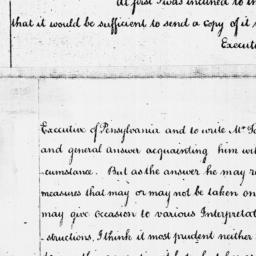 at first I was inclined to
that it would be sufficient to send a copy of it
Execut
Executive of Pensylvania and to write Mr
and general answer acquainting him wit
cumstance. But as the answer he may
measures that may or may not be taken on
may give occasion to various Interpretat
structions, I think it most prudent neither